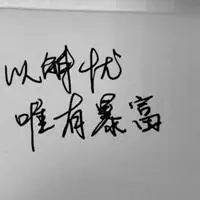 以解忧
唯有暴富